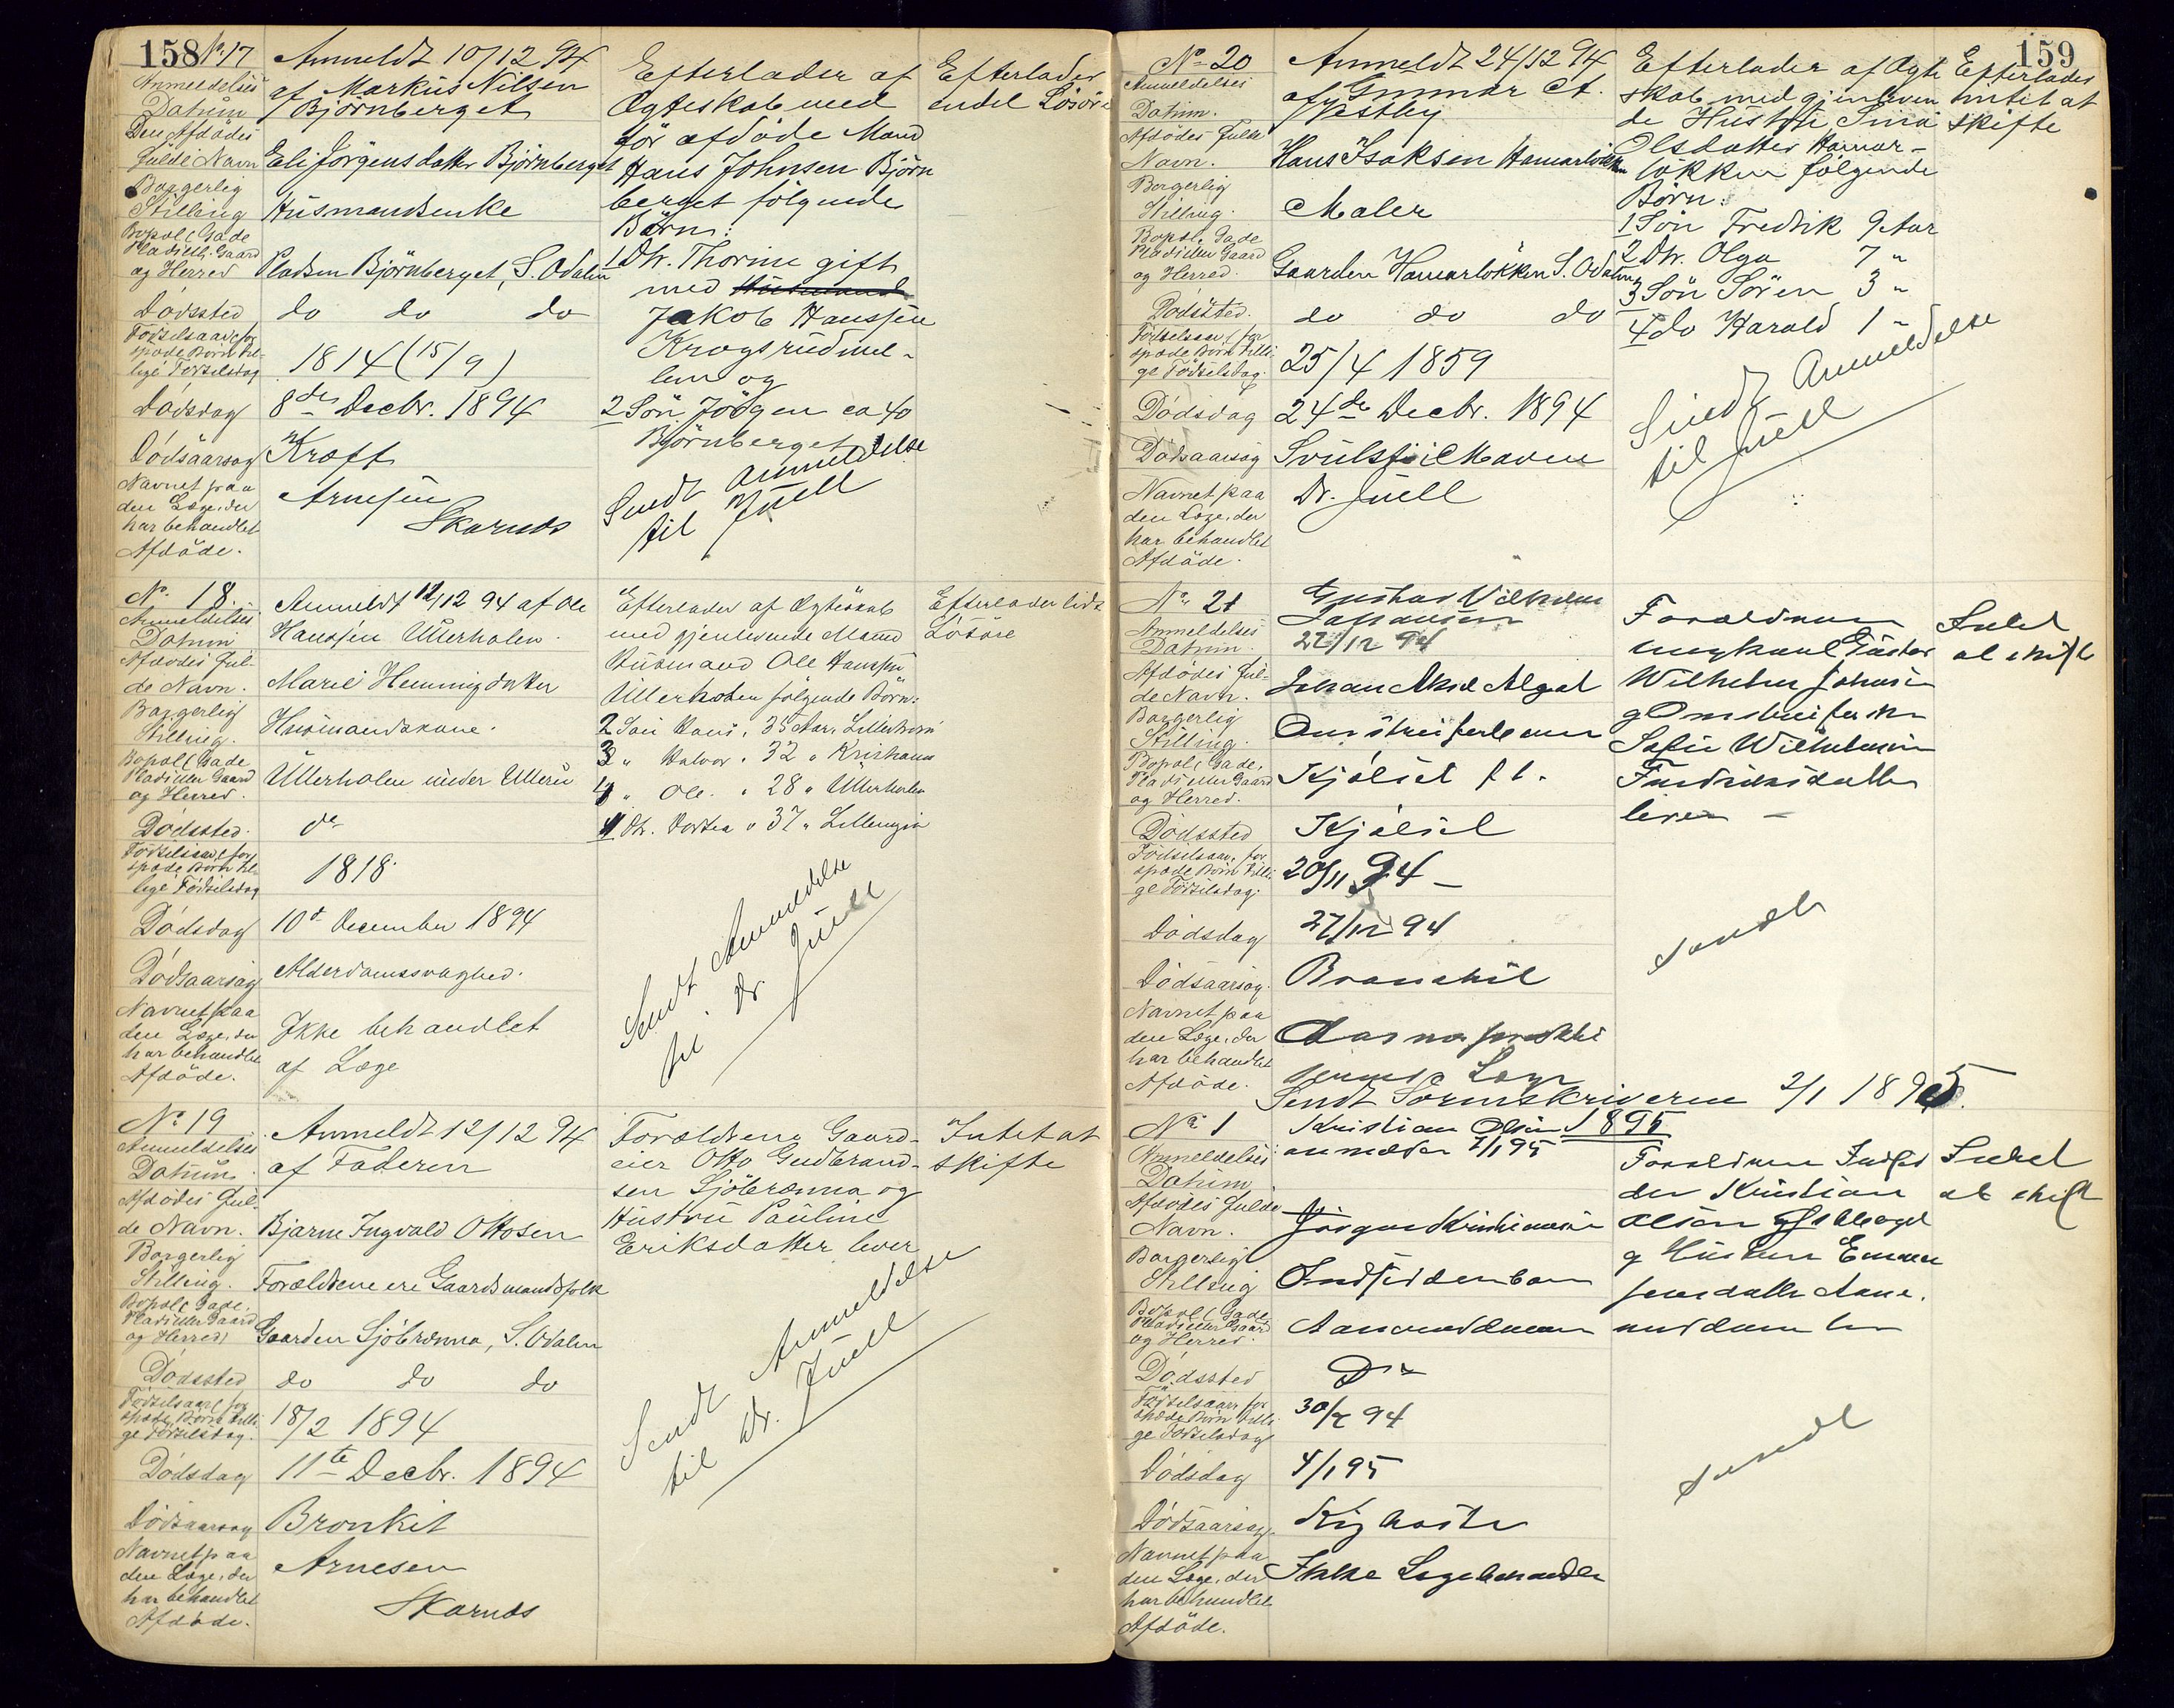 158 No 17
Anmeldelses
Datum
Anmeldt 10/12 94
af Markus Nilsen
Björnberget
Den Afdödes
fulde Navn
Eli Jörgensdatter Björnberget
Borgerlig
Stilling
Husmandsenke
Bopæl (Gade
Plads eller Gaard
og Herred
Pladsen Björnberget, S. Odalen
Dödssted
do do do
Födselsaar (for
spæde Börn til-
lige Födselsdag
1814 (15/9)
Dödsdag
8de Decbr. 1894
Dödsaarsag
Kræft
Navnet paa
den Læge, der
har behandlet
Afdöde.
Arnesen
Skarnæs
Efterlader af
Ægteskab med
før afdöde Mand
Hans Johnsen Björn
berget følgende
Børn:
1 Dtr. Thorine gift
med Husmand
Jakob Hanssen
Krogsrudmel-
lem og
2 Sön Jörgen ca 40
Björnberget
Sendt Anmeldelse
til Juell
Efterlader
endel Lösöre
No 18.
Anmeldelses
Datum
Anmeldt 12/12 94 af Ole
Hanssen Ullerholen.
Afdödes ful-
de Navn.
Marie Hemmigdatter
Borgerlig
Stilling.
Husmandskone.
Bopæl (Gade
Plads eller Gaard
og Herred.
Ullerholen under Ulleru
Dödssted.
do
Födselsaar (for
spæde Börn til-
lige Födselsdag
1818.
Dödsdag
10de December 1894
Dödsaarsag
Alderdomssvaghed.
Navnet paa
den Læge, der
har behandlet
Afdöde.
Ikke behandlet
af Læge
Efterlader af Ægteskab
med gjenlevende Mand
Husmand Ole Hanssen
Ullerholen følgende Børn:
2 Søn Hans, 35 Aar, Lillestrøm
3 " Halvor " 32 " Kristiania
4 " Ole. " 28 " Ullerholen
1 Dtr. Dortea " 37 " Lillengin
Sendt Anmeldelse
til Dr. Juell
Efterlader lidt
Lösöre
No 19
Anmeldelses
Datum.
Anmeldt 12/12 94
af Faderen
Afdödes ful-
de Navn.
Bjarne Ingvald Ottosen
Borgerlig
Stilling.
Forældrene ere Gaardsmandsfolk
Bopæl (Gade,
Plads eller Gaard
og Herred)
Gaarden Sjöbrænna, S. Odalen
Dödssted
do do do
Födselsaar (for
spæde Börn tilli
ge Födselsdag.
18/2 1894
Dödsdag
11te Decbr. 1894
Dödsaarsag
Bronkit
Navnet paa
den Læge, der
har behandlet
Afdöde.
Arnesen
Skarnæs
Forældrene Gaard-
eier Otto Gudbrand-
sen Sjöbrænna og
Hustru Pauline
Eriksdatter lever
Sendt Anmeldelse
til Dr. Juell
Intet at
skifte
159
No 20
Anmeldelses
Datum.
Anmeldt 24/12 94
af Gunnar A.
Westby
Afdödes fulde
Navn.
Hans Isaksen Hamarlökken
Borgerlig
Stilling.
Maler
Bopæl, Gade
Plads eller Gaard
og Herred.
Gaarden Hamarlökken S. Odalen
Dödssted.
do do do
Födselsaar (for
spæde Börn tilli
ge Födselsdag.
25/4 1859
Dödsdag
24de Decbr. 1894
Dödsaarsag
Svulst i Maven
Navnet paa
den Læge, der
har behandlet
Afdöde.
Dr. Juell
Efterlader af Ægte
skab med gjenleven
de Hustru Sina
Olsdatter Hamar-
lökken følgende
Börn:
1 Sön Fredrik 9 Aar
2 Dtr. Olga 7 "
3 Sön Sören 3 "
4 do Harald 1 "
Sendt Anmeldelse
til Juell
Efterlades
intet at
skifte
No 21
Anmeldelses
Datum.
Gustav Vilhelm
Johansen
27/12 94
Afdödes ful-
de Navn.
Johan Aksel
Borgerlig
Stilling.
Bopæl (Gade,
Plads eller Gaard
og Herred.
Kjölset
Dödssted
Kjölset
Födselsaar, for
spæde Börn tilli
ge Födselsdag.
20/11 94 –
Dödsdag
27/12 94
Dödsaarsag.
Bronchit
Navnet paa
den Læge, der
har behandlet
Afdöde.
Læge
Forældrene
Wilhelm Johansen
Sofie Wilhelmine
Fredriksdatter
lever –
sendt
Intet
at skifte
Sendt Sorenskriveren 2/1 1895.
No 1
Anmeldelses
Datum
Kristian Olsen 1895
anmelder 7/1 95
Afdödes fulde
Navn.
Jörgen Kristiansen
Borgerlig
Stilling
Indsidderbarn
Bopæl (Gade,
Plads eller Gaard
og Herred.
Dödssted
Do
Födselsaar, for
spæde Börn tilli
ge Födselsdag
94
Dödsdag
4/1 95
Dödsaarsag.
Kighoste
Navnet paa
den Læge, der
har behandlet
Afdöde.
Ikke Lægebehandlet
Forældrene Indsid
der Kristian
Olsen
og Hustru Emma
sendt
Intet
at skift